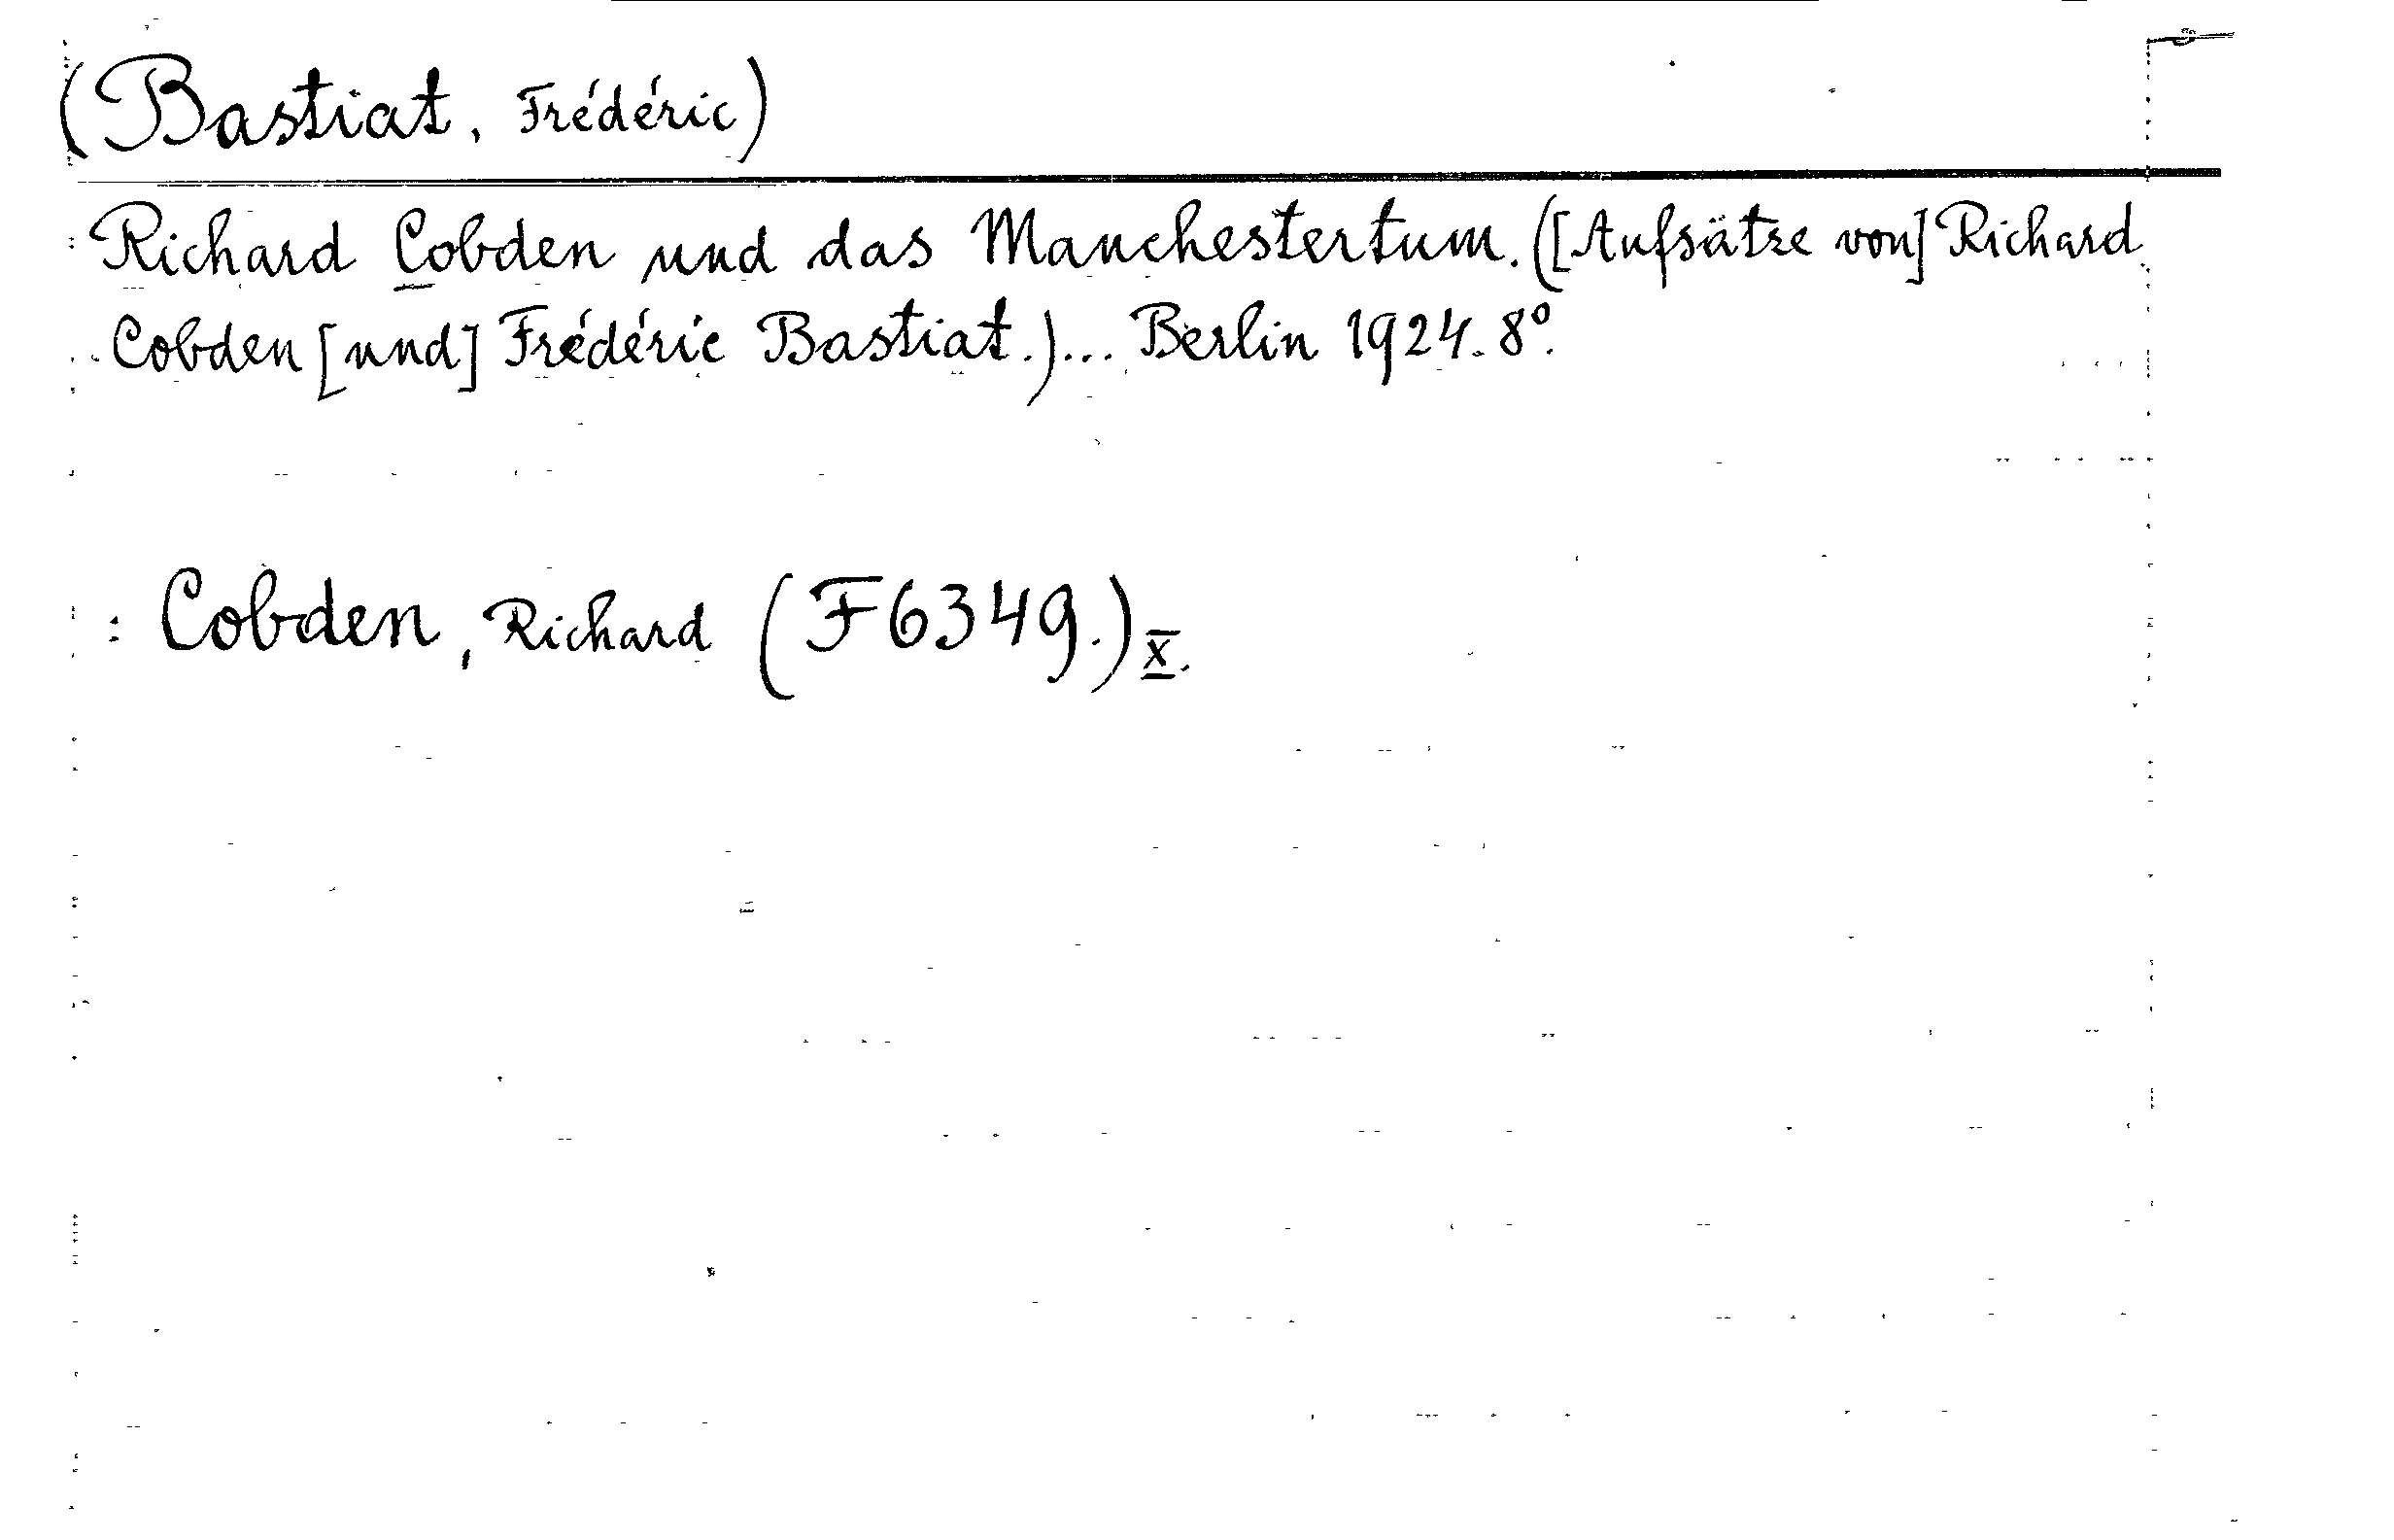 (Bastiat, Frédéric)
Richard Cobden und das Manchestertum. ([Aufsätze von] Richard
Cobden [und] Frédéric Bastiat.)... Berlin 1924. 8°.
: Cobden, Richard (F6349.) X.